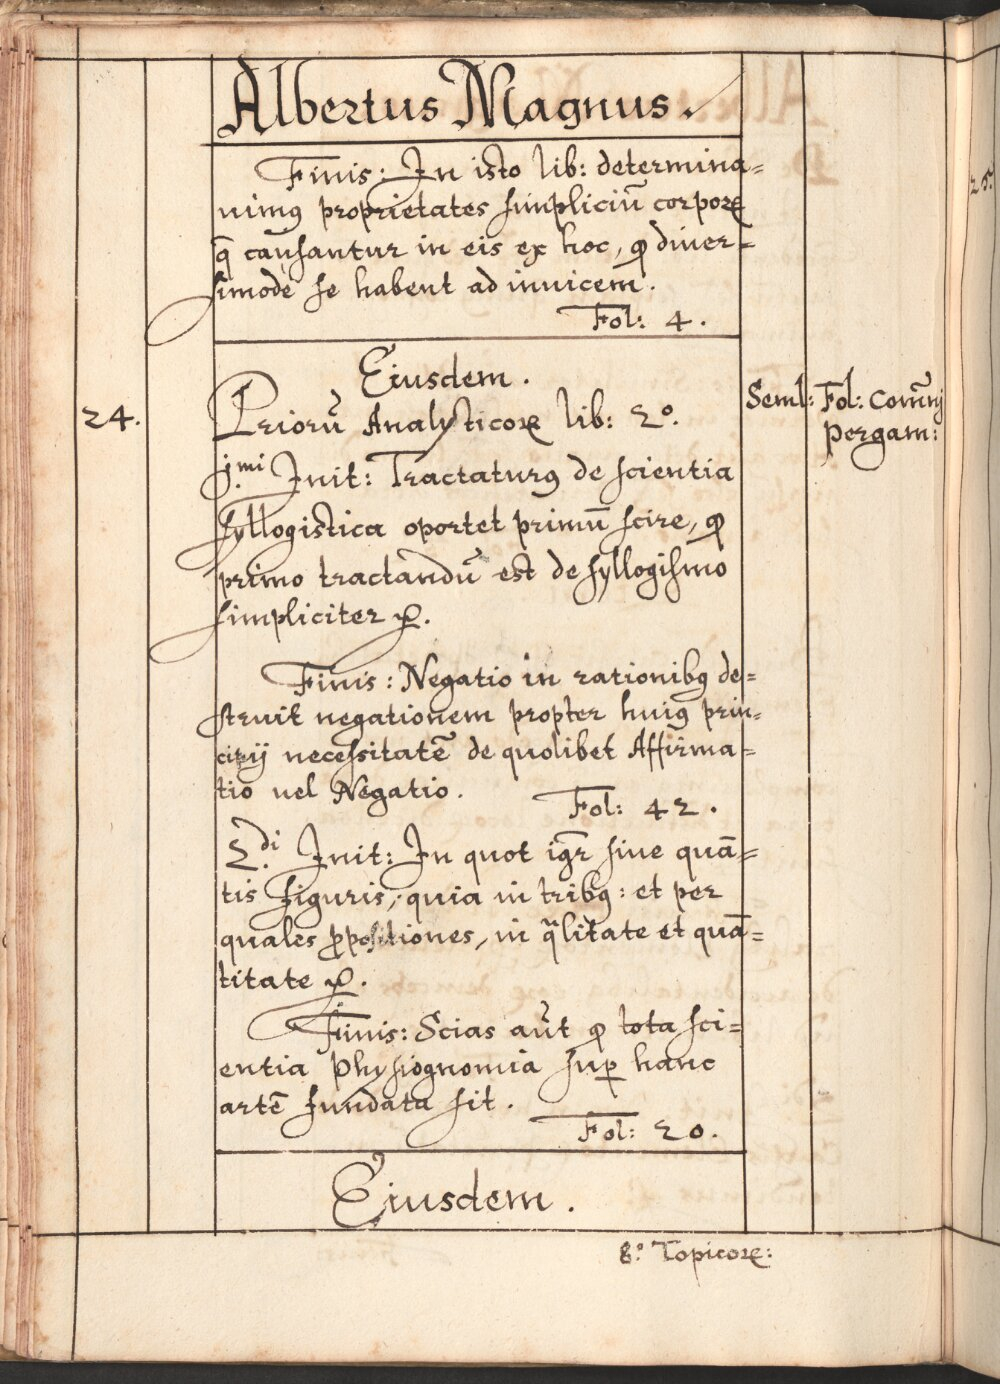 Albertus Magnus.
Finis: In isto lib: determina=
nimꝰ proprietates simpliciū corporꝝ
q̄ causantur in eis ex hoc, ꝙ diuer=
simode se habent ad inuicem.
Fol: 4.
Eiusdem.
24.
Priorū Analyticorꝝ lib: 2º.
Seml: Fol: Com̄nj
pergam:
j.mi Init: Tractaturꝰ de scientia
syllogistica oportet primū scire, ꝙ
primo tractandū est de syllogismo
simpliciter ꝛc.
Finis: Negatio in rationibꝰ de=
struit negationem propter huiꝰ prin=
cipij necessitatē de quolibet Affirma=
tio uel Negatio.
Fol: 42.
2.di Init: In quot igr̄ siue quā=
tis figuris, quia in tribꝰ: et per
quales ꝓpositiones, in qᵃlitate et quā=
titate ꝛc.
Finis: Scias aūt ꝙ tota sci=
entia physiognomia suꝑ hanc
artē fundata sit.
Fol: 20.
Eiusdem.
8º Topicorꝝ:
25.